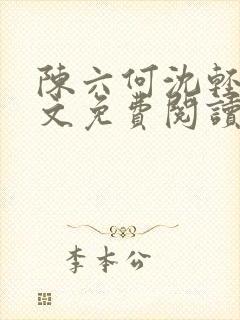 陳六何沈輕
文免費閱讀
李本公